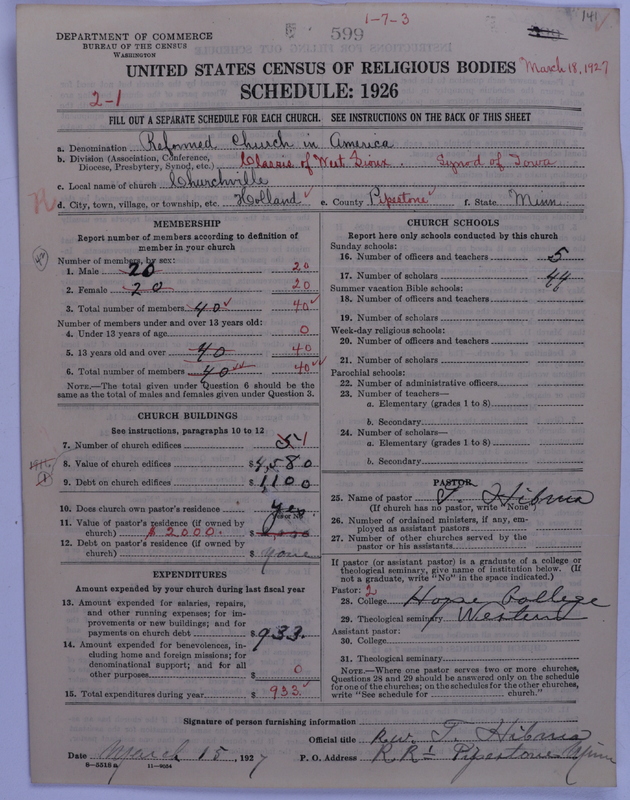 1-7-3
599
141
DEPARTMENT OF COMMERCE
BUREAU OF THE CENSUS
WASHINGTON
UNITED STATES CENSUS OF RELIGIOUS BODIES March 18, 1927
SCHEDULE: 1926
2-1
FILL OUT A SEPARATE SCHEDULE FOR EACH CHURCH. SEE INSTRUCTIONS ON THE BACK OF THIS SHEET
a. Denomination Reformed Church in America
b. Division (Association, Conference, Diocese, Presbytery, Synod, etc.) Classis of West Sioux. Synod of Iowa
c. Local name of church Churchville
d. City, town, village, or township, etc. Holland e. County Pipestone f. State Minn.
MEMBERSHIP
Report number of members according to definition of
member in your church
Number of members, by sex:
1. Male 20 20
2. Female 20 20
3. Total number of members 40 40
Number of members under and over 13 years old:
4. Under 13 years of age 0
5. 13 years old and over 40 40
6. Total number of members 40 40
NOTE.—The total given under Question 6 should be
same as the total of males and females given under Question 3.
CHURCH BUILDINGS
See instructions, paragraphs 10 to 12
7. Number of church edifices 1
8. Value of church edifices $4,580
9. Debt on church edifices $1,100
10. Does church own pastor's residence yes
11. Value of pastor's residence (if owned by
church) $2000. $
12. Debt on pastor's residence (if owned by
church) $ none
EXPENDITURES
Amount expended by your church during last fiscal year
13. Amount expended for salaries, repairs,
and other running expenses; for im-
provements or new buildings; and for
payments on church debt $933.
14. Amount expended for benevolences, in-
cluding home and foreign missions; for
denominational support; and for all
other purposes $ 0
15. Total expenditures during year $ 933.
CHURCH SCHOOLS
Report here only schools conducted by this church
Sunday schools:
16. Number of officers and teachers 5
17. Number of scholars 44
Summer vacation Bible schools:
18. Number of officers and teachers
19. Number of scholars
Week-day religious schools:
20. Number of officers and teachers
21. Number of scholars
Parochial schools:
22. Number of administrative officers
23. Number of teachers—
a. Elementary (grades 1 to 8)
b. Secondary
24. Number of scholars—
a. Elementary (grades 1 to 8)
b. Secondary
PASTOR
25. Name of pastor T. Hibma
(If church has no pastor, write "None")
26. Number of ordained ministers, if any, em-
ployed as assistant pastors
27. Number of other churches served by the
pastor or his assistants
If pastor (or assistant pastor) is a graduate of a college or
theological seminary, give name of institution below. (If
not a graduate, write "No" in the space indicated.)
Pastor: 2
28. College Hope College
29. Theological seminary Western
Assistant pastor:
30. College
31. Theological seminary
NOTE.—Where one pastor serves two or more churches,
Questions 28 and 29 should be answered only on the schedule
for one of the churches; on the schedules for the other churches,
write "See schedule for church."
Signature of person furnishing information
Official title Rev. T. Hibma
Date March 15, 1927 P. O. Address R R 1 Pipestone Minn
8-5518 a 11-9054